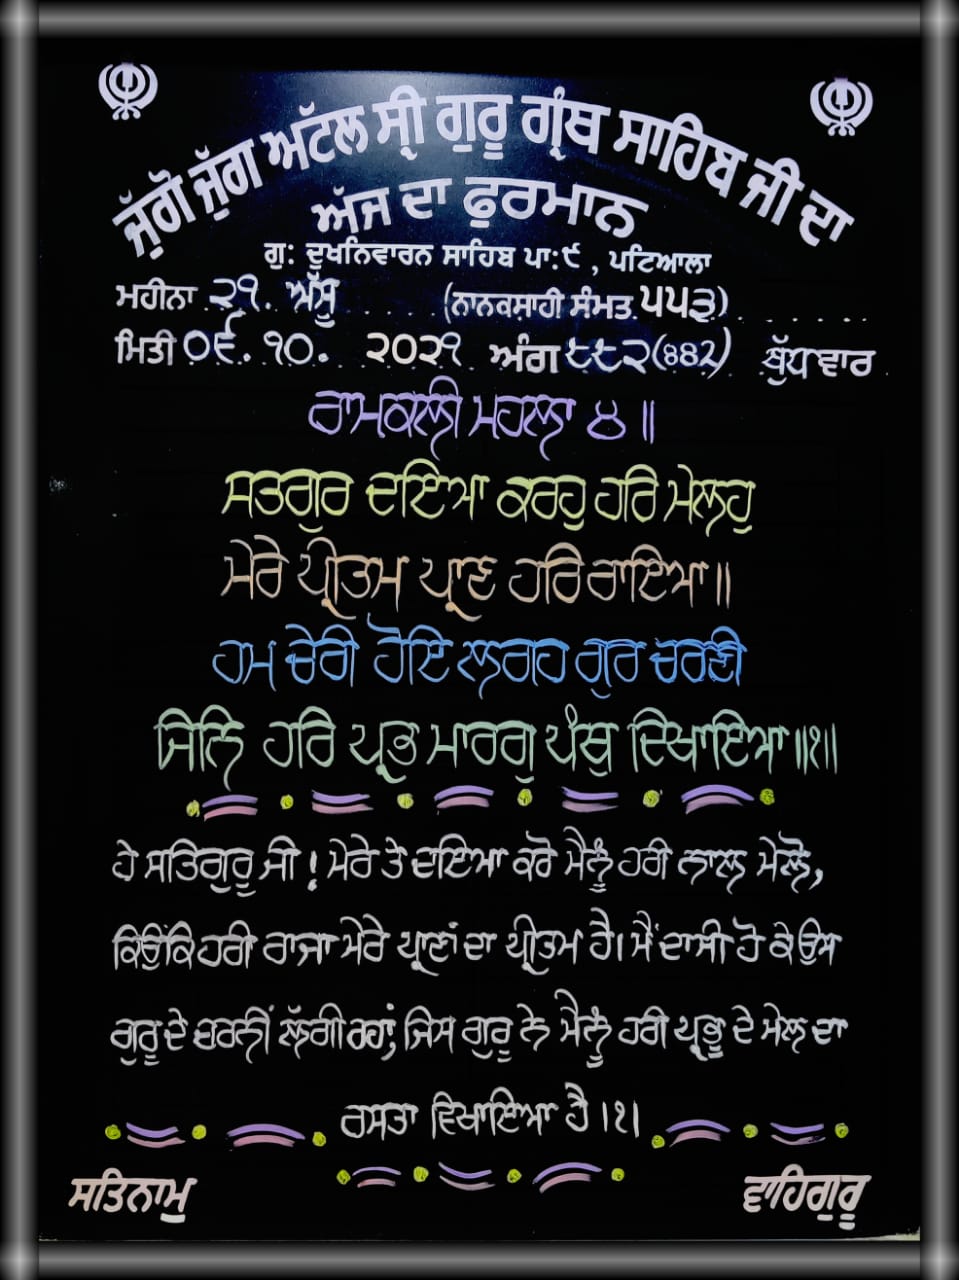 ਜੁੱਗੋ ਜੁੱਗ ਅਟੱਲ ਸ੍ਰੀ ਗੁਰੂ ਗ੍ਰੰਥ ਸਾਹਿਬ ਜੀ ਦਾ
ਅੱਜ ਦਾ ਫੁਰਮਾਨ
ਗੁ: ਦੁਖਨਿਵਾਰਨ ਸਾਹਿਬ ਪਾ:੯, ਪਟਿਆਲਾ
ਮਹੀਨਾ ੨੧. ਅੱਸੂ (ਨਾਨਕਸ਼ਾਹੀ ਸੰਮਤ ੫੫੩)
ਮਿਤੀ ੦੬. ੧੦. ੨੦੨੧ ਅੰਗ ੮੮੨(882) ਬੁੱਧਵਾਰ
ਰਾਮਕਲੀ ਮਹਲਾ ੪॥
ਸਤਗੁਰ ਦਇਆ ਕਰਹੁ ਹਰਿ ਮੇਲਹੁ
ਮੇਰੇ ਪ੍ਰੀਤਮ ਪ੍ਰਾਣ ਹਰਿ ਰਾਇਆ॥
ਹਮ ਚੇਰੀ ਹੋਇ ਲਗਹ ਗੁਰ ਚਰਣੀ
ਜਿਨਿ ਹਰਿ ਪ੍ਰਭ ਮਾਰਗੁ ਪੰਥੁ ਦਿਖਾਇਆ॥੧॥
ਹੇ ਸਤਿਗੁਰੂ ਜੀ! ਮੇਰੇ ਤੇ ਦਇਆ ਕਰੋ ਮੈਨੂੰ ਹਰੀ ਨਾਲ ਮੇਲੋ,
ਕਿਉਂਕਿ ਹਰੀ ਰਾਜਾ ਮੇਰੇ ਪ੍ਰਾਣਾਂ ਦਾ ਪ੍ਰੀਤਮ ਹੈ। ਮੈਂ ਦਾਸੀ ਹੋ ਕੇ ਉਸ
ਗੁਰੂ ਦੇ ਚਰਨੀਂ ਲੱਗੀ ਰਹਾਂ, ਜਿਸ ਗੁਰੂ ਨੇ ਮੈਨੂੰ ਹਰੀ ਪ੍ਰਭੂ ਦੇ ਮੇਲ ਦਾ
ਰਸਤਾ ਵਿਖਾਇਆ ਹੈ।੧।
ਸਤਿਨਾਮੁ ਵਾਹਿਗੁਰੂ